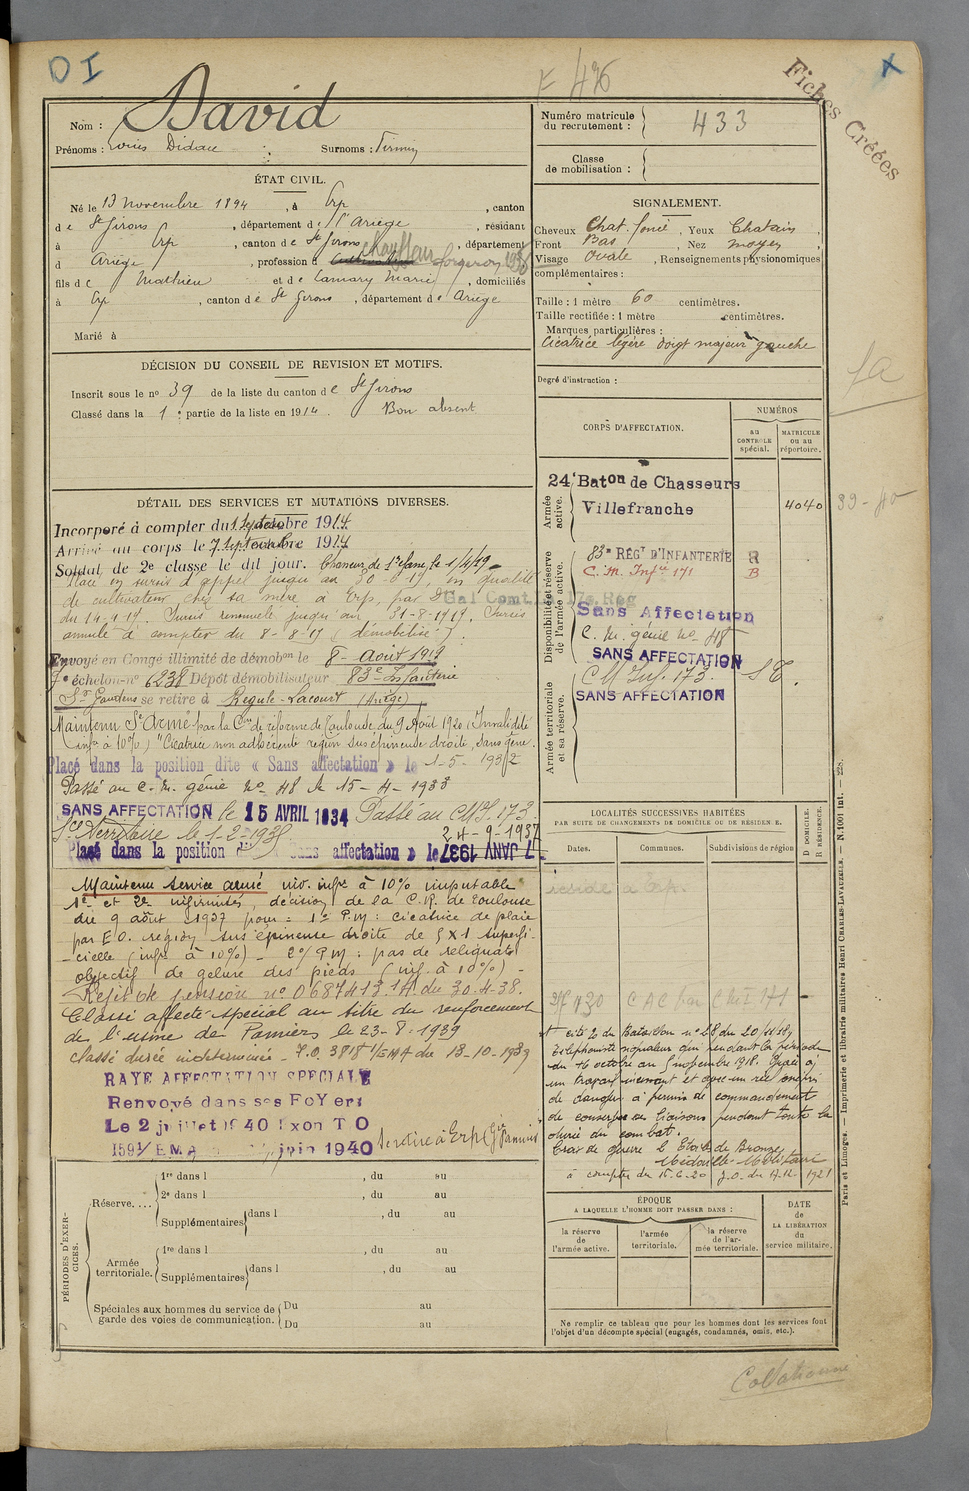 D I
F 476
X
Fiches Créées
Nom : David
Prénoms : Louis Didace Surnoms : Firmin
ÉTAT CIVIL.
Né le 13 Novembre 1894, à Erp, canton
de St Girons, département de l'Ariège, résidant
à Erp, canton de St Girons, département
d Ariège, profession d chauffeur forgeron
fils de Mathieu et de Camary Marie, domiciliés
à Erp, canton de St Girons, département de Ariège
Marié à
DÉCISION DU CONSEIL DE REVISION ET MOTIFS.
Inscrit sous le no 39 de la liste du canton de St Girons
Classé dans la 1e partie de la liste en 1914. Bon absent
DÉTAIL DES SERVICES ET MUTATIONS DIVERSES.
Incorporé à compter du 1 Septembre 1914
Arrivé au corps le 7 Septembre 1914
Soldat de 2e classe le dit jour. Chasseur de 1re classe le 1/4/19
Placé en sursis d'appel jusqu'au 30-6-19, en qualité
de cultivateur chez sa mère à Erp, par D Gal Comt 17e Reg
du 14-4-19. Sursis renouvelé jusqu'au 31-8-1919. Sursis
annulé à compter du 8-8-19 (démobilisé).
Envoyé en Congé illimité de démobon le 8- Août 1919
7e échelon-no 6238 Dépôt démobilisateur 83e Infanterie
St Gaudens se retire à Regule-Lacourt (Ariège)
Maintenu Sce Armé par la Con de réforme de Toulouse du 9 Août 1920 (Invalidité
infre à 10%) "Cicatrice non adhérente région sus épineuse droite, sans gêne.
Placé dans la position dite « Sans affectation » le 1-5-1932
Passé au C. M. génie No 48 le 15-4-1933
SANS AFFECTATION le 15 AVRIL 1934 Passé au CMI 173
24-9-1937
Placé dans la position Sans affectation » le 7 JANV 1937
Maintenu service armé inv. infre à 10% imputable
1e et 2e infirmités, décision de la C.R. de Toulouse
du 9 août 1937 pour = 1e P.M : cicatrice de plaie
par E.O. région sus épineuse droite de 5x1 superfi-
-cielle (infre à 10%) - 2e/ P.M : pas de reliquats
objectif de gelure des pieds (inf. à 10%) -
Rejet de pension no 0687413.1A. du 30-4-38.
Classé affecté spécial au titre du renforcement
de l'usine de Pamiers le 23-8-1939
classé durée indéterminée - S.O. 3818 1/EMA du 13-10-1939
RAYE AFFECTATION SPECIALE
Renvoyé dans ses FoYers
Le 2 juillet 1940 Exon T O
1591/ E M A juin 1940 se retire à Erp
PÉRIODES D'EXERCICES.
Réserve.... 1re dans l , du au
2e dans l , du au
Supplémentaires dans l , du au
Armée territoriale. 1re dans l , du au
Supplémentaires dans l , du au
Spéciales aux hommes du service de garde des voies de communication. Du au
Du au
Numéro matricule du recrutement : 433
Classe de mobilisation :
SIGNALEMENT.
Cheveux Chat. foncé, Yeux Chatain,
Front Bas, Nez moyen
Visage Ovale, Renseignements physionomiques
complémentaires :
Taille : 1 mètre 60 centimètres.
Taille rectifiée : 1 mètre centimètres.
Marques particulières :
Cicatrice légère doigt majeur gauche
Degré d'instruction :
1a
CORPS D'AFFECTATION.
NUMÉROS
au CONTROLE spécial.
MATRICULE ou au répertoire.
Armée active.
24e Baton de Chasseurs
Villefranche
4040
39-40
Disponibilité et réserve de l'armée active.
83e RÉGt D'INFANTERIE R
C. M. Infie 171 B
Sans Affectation
C. M. génie No 48
SANS AFFECTATION
C M Inf. 173.
SANS AFFECTATION
Armée territoriale et sa réserve.
LOCALITÉS SUCCESSIVES HABITÉES
PAR SUITE DE CHANGEMENTS DE DOMICILE OU DE RÉSIDENCE.
Dates. Communes. Subdivisions de région
D DOMICILE. R RÉSIDENCE.
réside à Erp.
Cité O du Bataillon no 28 du 20/11/18
téléphoniste signaleur qui pendant la période
du 16 octobre au 5 novembre 1918. Grâce à
un travail incessant et avec un réel mépris
du danger a permis au commandement
de conserver les liaisons pendant toute la
durée du combat.
Croix de guerre Etoile de Bronze
Médaille Militaire
à compter du 16-6-20 J.O. du 17-12-1921
ÉPOQUE
A LAQUELLE L'HOMME DOIT PASSER DANS :
la réserve de l'armée active.
l'armée territoriale.
la réserve de l'armée territoriale.
DATE de LA LIBÉRATION du service militaire.
Ne remplir ce tableau que pour les hommes dont les services font
l'objet d'un décompte spécial (engagés, condamnés, omis, etc.).
Paris et Limoges. — Imprimerie et librairie militaires Henri CHARLES-LAVAUZELLE. — N. 1001 int. 228.
Collationné